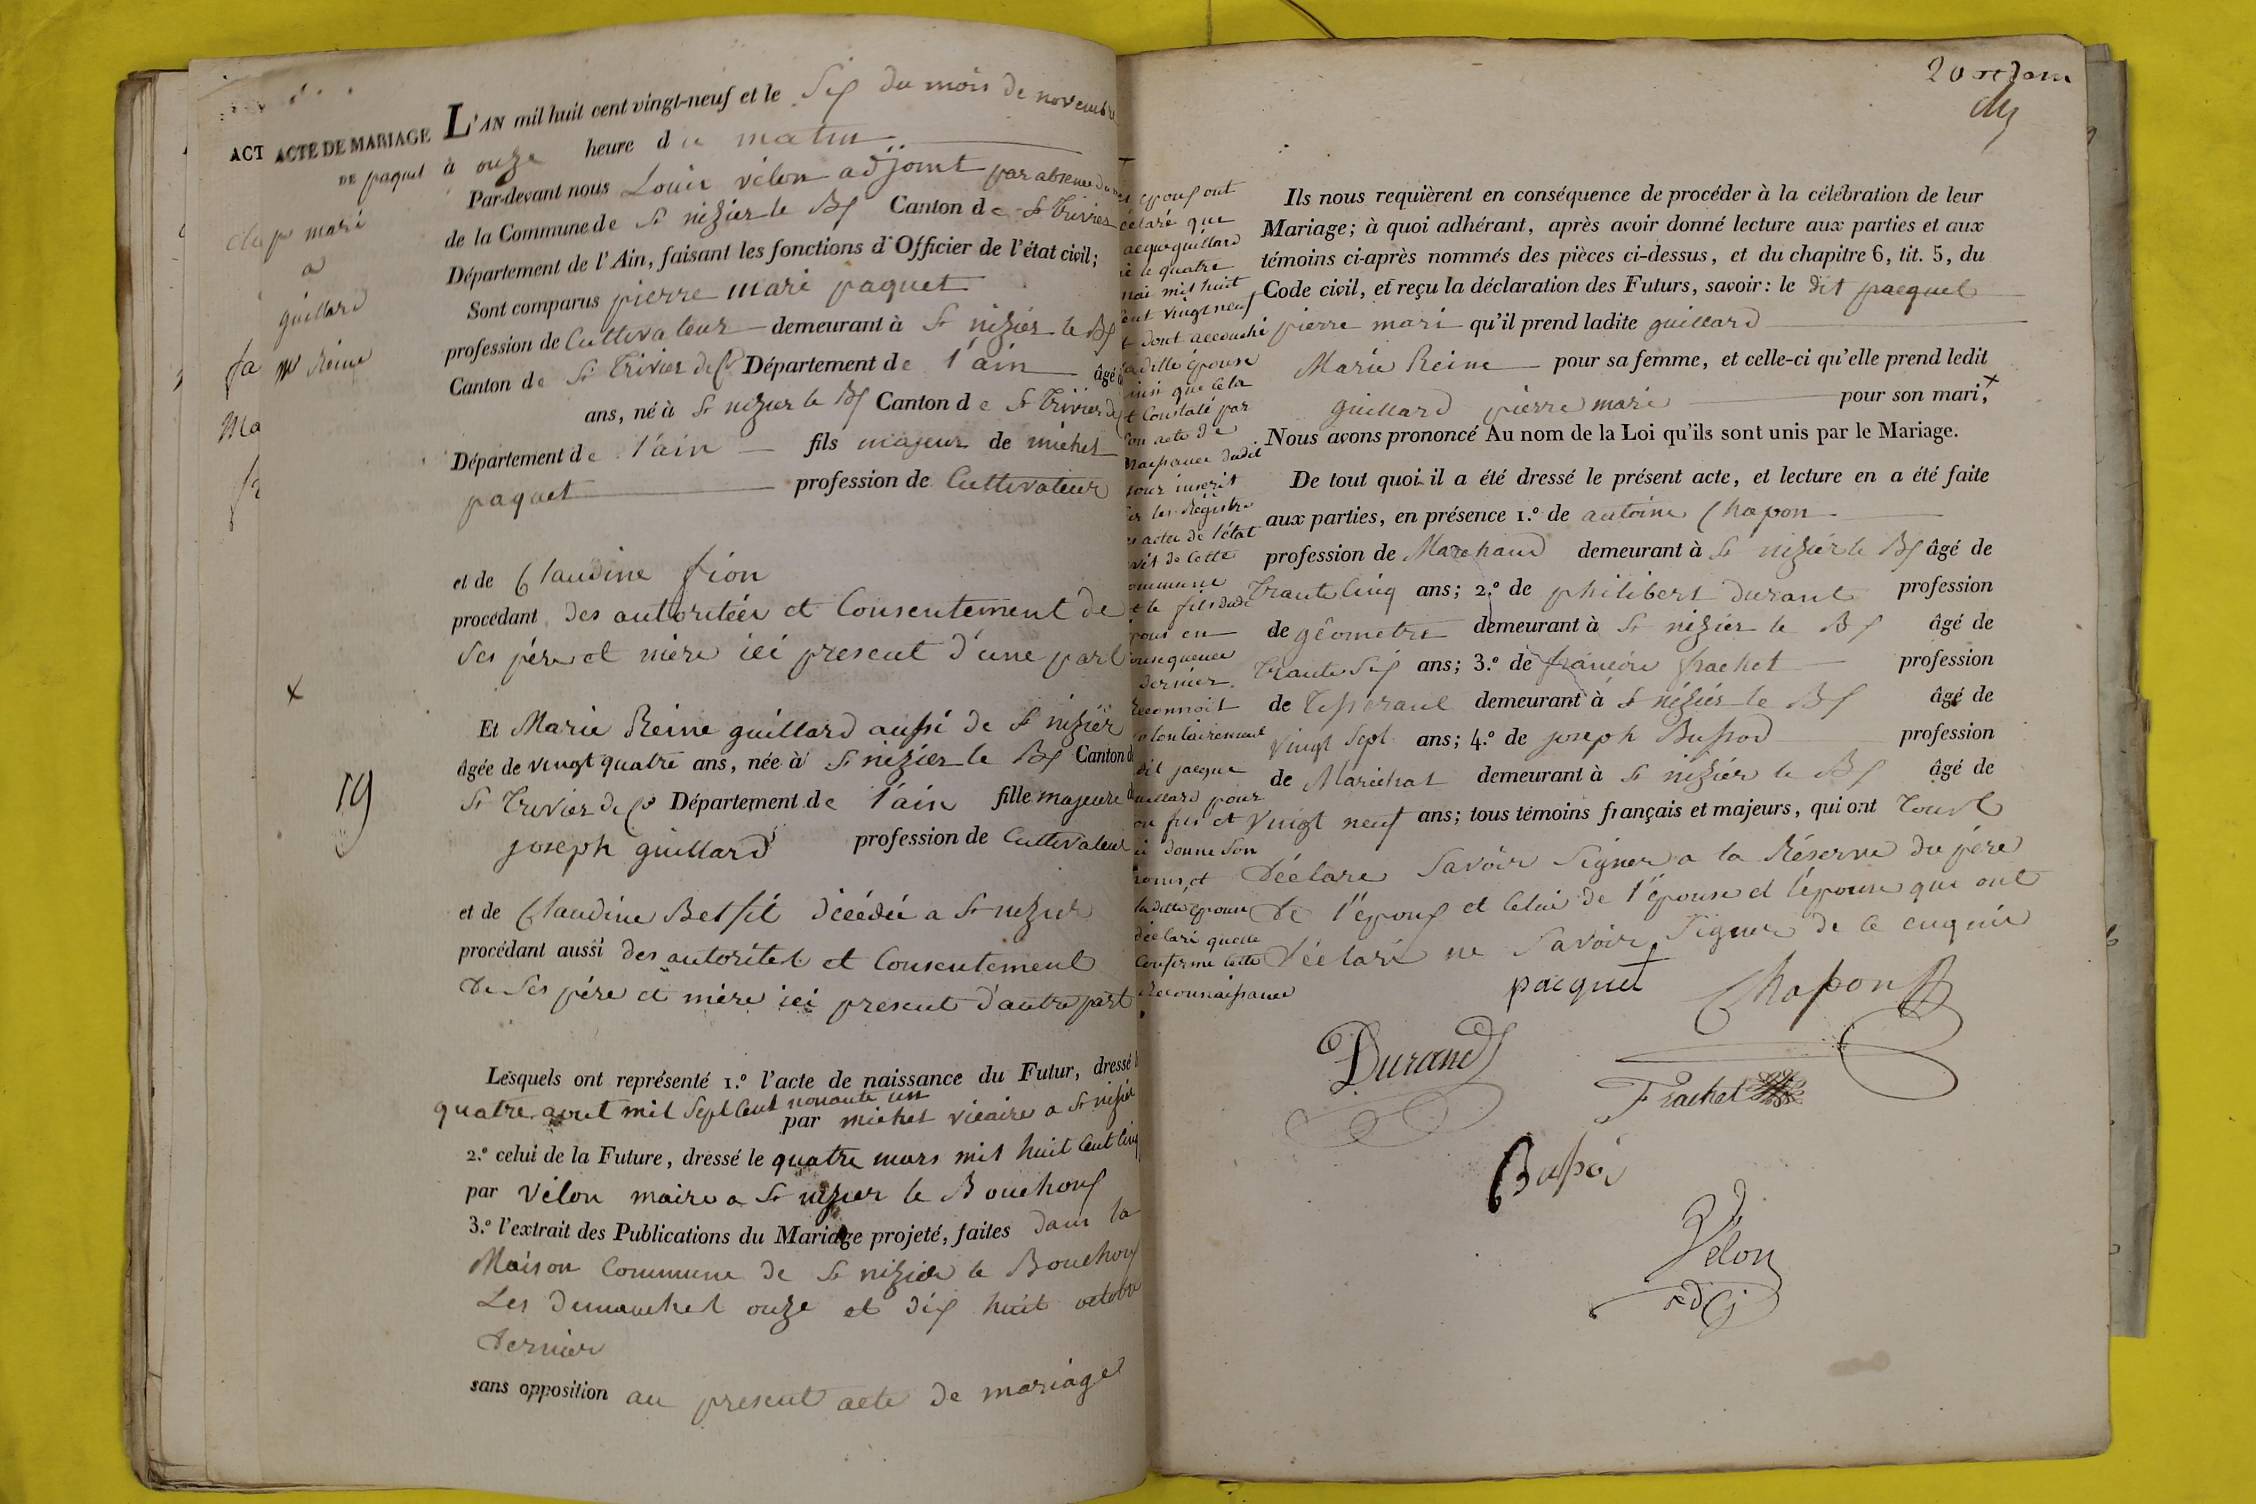 ACT
ACTE DE MARIAGE
DE paquet
mari
a
guillard
m⁠ie Reine
fa
Ma
19
L'AN mil huit cent vingt-neuf et le Six du mois de novembre
à onze heure du matin
Par-devant nous Louis vélon adjoint par absence du
de la Commune de St nizier le Bx Canton de St Trivier
Département de l'Ain, faisant les fonctions d'Officier de l'état civil;
Sont comparus pierre mari paquet
profession de Cultivateur demeurant à St nizier le Bx
Canton de St Trivier de Co Département de l'ain âgé
ans, né à St nizier le Bx Canton de St Trivier de
Département de l'ain fils majeur de michel
paquet profession de Cultivateur
et de Claudine fion
procédant des autoritéés et Consentement de
Ses pére et mére ici present d'une part
Et Marie Reine guillard aussi de St nizier
âgée de vingt quatre ans, née à St nizier le Bx Canton d
St Trivier de Co Département de l'ain fille majeure d
joseph guillard profession de Cultivateur
et de Claudine décédée a St nizier
procédant aussi des autorités et Consentement
De Ses pére et mére ici present d'autre part
Lesquels ont représenté 1.º l'acte de naissance du Futur, dressé l
quatre aout mil Sept Cent nonante un
par michel vicaire a St nizier
2.º celui de la Future, dressé le quatre mars mil huit Cent Cinq
par vélon maire a St nizier le Bouchoux
3.º l'extrait des Publications du Mariage projeté, faites dans la
Maison Commune de St nizier le Bouchoux
Les dimanches onze et dix huit octobre
Dernier
sans opposition au present acte de mariage
époux ont
éclaré que
acque guillard
é le quatre
mai mil huit
ent vingt neuf
t dont accouché
ladite épouse
insi que cela
t Constaté par
on acte de
naissance dudit
jour inscrit
ur les Régistre
es actes de l'état
ivil de Cette
ommune
et le fils dudi
époux en
onsequence
dernier
Reconnoit
olontairement
dit jacque
uillard pour
on fils et
ui donne Son
nom, et
ladite épouse
déclare quelle
Confirme Cette
Reconnaissance
20
Ils nous requièrent en conséquence de procéder à la célébration de leur
Mariage; à quoi adhérant, après avoir donné lecture aux parties et aux
témoins ci-après nommés des pièces ci-dessus, et du chapitre 6, tit. 5, du
Code civil, et reçu la déclaration des Futurs, savoir: le dit pacquet
pierre mari qu'il prend ladite guillard
Marie Reine pour sa femme, et celle-ci qu'elle prend ledit
guillard pierre mari pour son mari,
Nous avons prononcé Au nom de la Loi qu'ils sont unis par le Mariage.
De tout quoi il a été dressé le présent acte, et lecture en a été faite
aux parties, en présence 1.º de antoine Chapon
profession de Marchand demeurant à St nizier le Bx âgé de
Trante Cinq ans; 2.º de philibert durant profession
de géometre demeurant à St nizier le Bx âgé de
Trante Six ans; 3.º de françois frachet profession
de Tisserant demeurant à St nizier le Bx âgé de
vingt Sept ans; 4.º de joseph Bussod profession
de Maréchal demeurant à St nizier le Bx âgé de
vingt neuf ans; tous témoins français et majeurs, qui ont Tous
déclare Savoir Signer a la Réserve du pére
de l'époux et Celui de l'épouse et l'épouse qui ont
déclaré ne Savoir Signer de ce enquis
pacquet
Chapon
Durand
Frachet
Vélon
adj